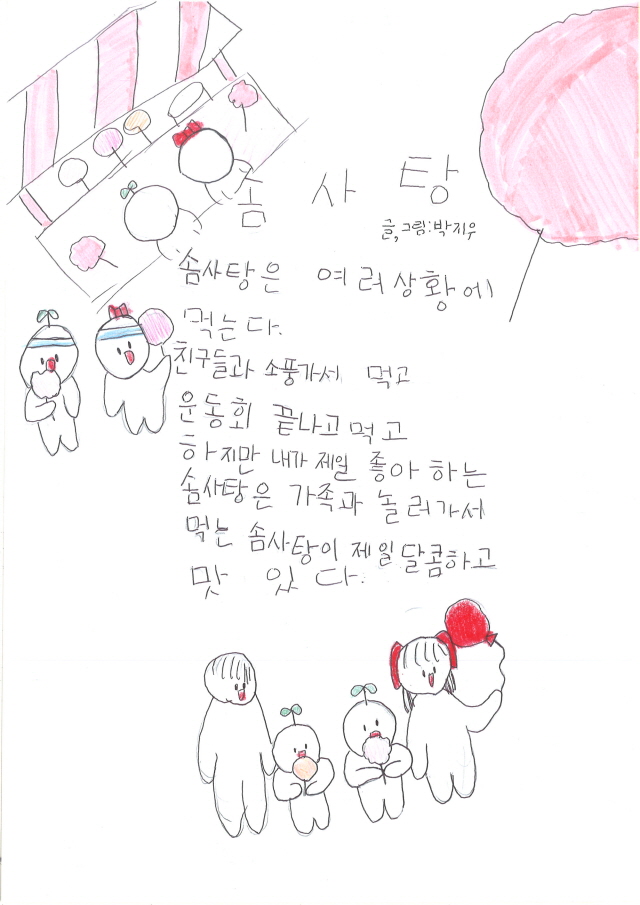 솜 사 탕
글,그림:박지우
솜사탕은 여러상황에
먹는다.
친구들과 소풍가서 먹고
운동회 끝나고 먹고
하지만 내가 제일 좋아 하는
솜사탕은 가족과 놀러가서
먹는 솜사탕이 제일 달콤하고
맛 있 다.